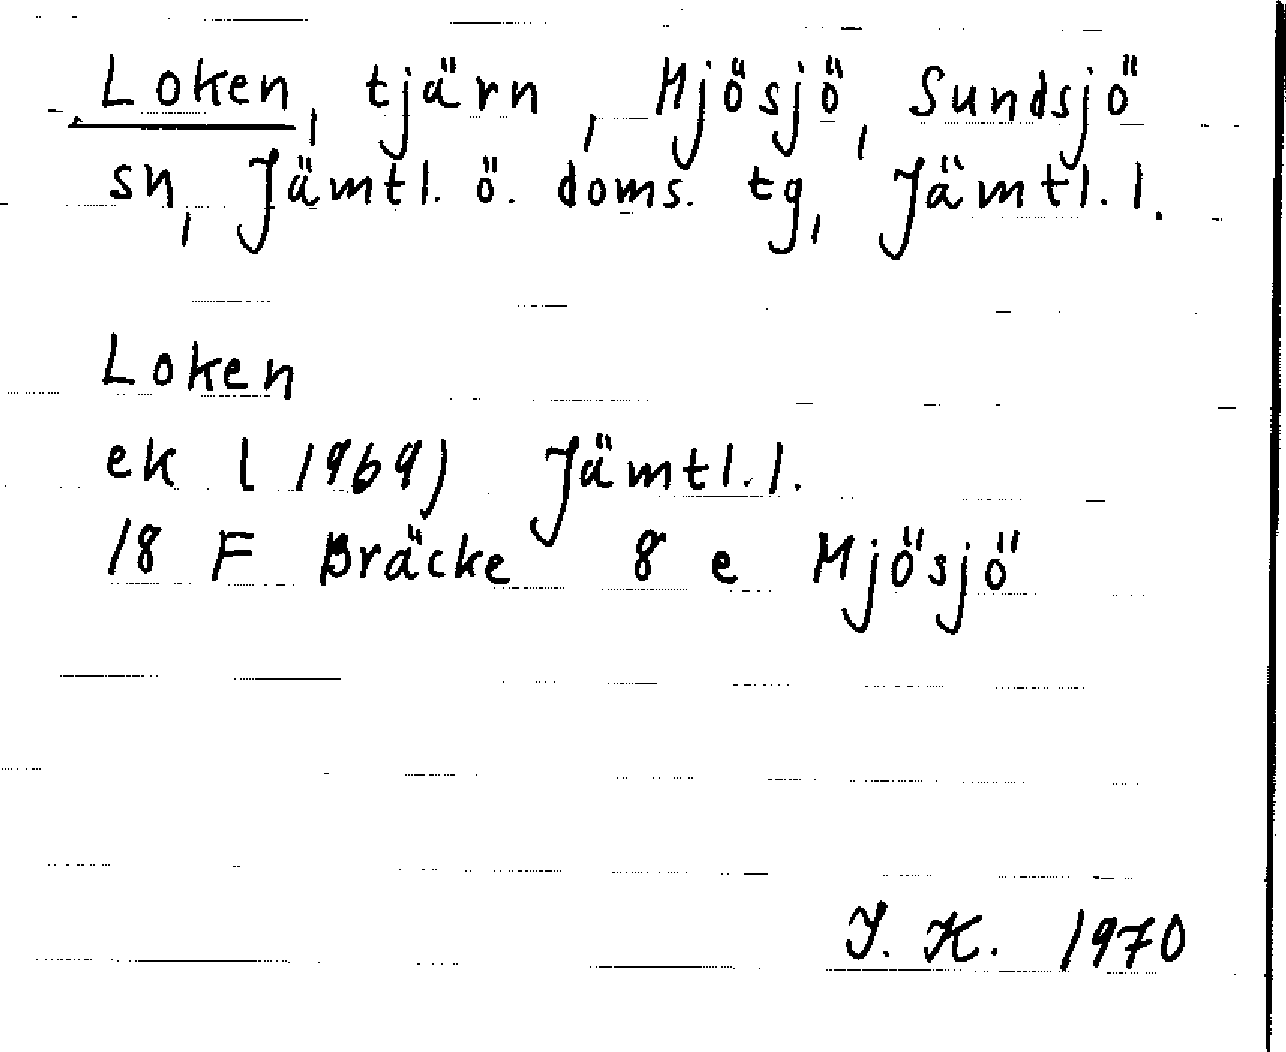 Loken, tjärn, Mjösjö, Sundsjö
sn, Jämtl. ö. doms. tg, Jämtl. l.
Loken
ek (1969) Jämtl. l.
18 F Bräcke 8 e Mjösjö
I. K. 1970